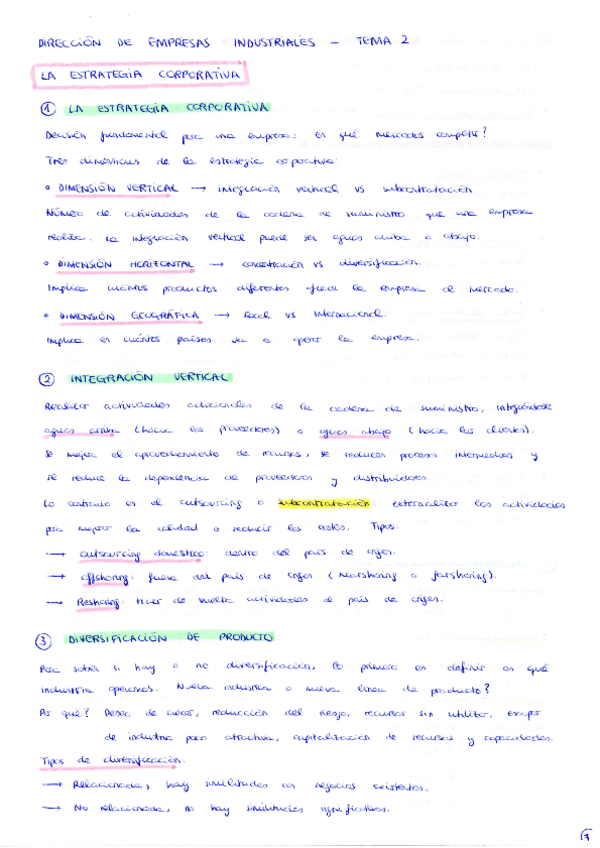 DIRECCIÓN DE EMPRESAS INDUSTRIALES - TEMA 2
LA ESTRATEGIA CORPORATIVA
1 LA ESTRATEGIA CORPORATIVA
Decisión fundamental por una empresa: en qué mercados competir?
Tres dimensiones de la estrategia corporativa:
• DIMENSIÓN VERTICAL → integración vertical vs subcontratación
Número de actividades de la cadena de suministro que una empresa
realiza. La integración vertical puede ser aguas arriba o abajo.
• DIMENSIÓN HORIZONTAL → concentración vs diversificación.
Implica cuántos productos diferentes lleva la empresa al mercado.
• DIMENSIÓN GEOGRÁFICA → local vs internacional.
Implica en cuántos países va a operar la empresa.
2 INTEGRACIÓN VERTICAL
Realizar actividades adicionales de la cadena de suministro, integrándose
aguas arriba (hacia los proveedores) o aguas abajo (hacia los clientes).
Se mejora el aprovechamiento de recursos, se reducen procesos intermedios y
se reduce la dependencia de proveedores y distribuidores.
Lo contrario es el outsourcing o subcontratación: externalizar las actividades
para mejorar la calidad o reducir los costes. Tipos:
→ Outsourcing doméstico: dentro del país de origen.
→ Offshoring: fuera del país de origen (Nearshoring o farshoring).
→ Reshoring: traer de vuelta actividades al país de origen.
3 DIVERSIFICACIÓN DE PRODUCTO
Para saber si hay o no diversificación, lo primero es definir en qué
industria operamos. Nueva industria o nueva línea de producto?
Por qué? Deseo de crecer, reducción del riesgo, recursos sin utilizar, escapar
de industria poco atractiva, capitalización de recursos y capacidades.
Tipos de diversificación:
→ Relacionada, hay similitudes con negocios existentes.
→ No relacionada, no hay similitudes significativas.